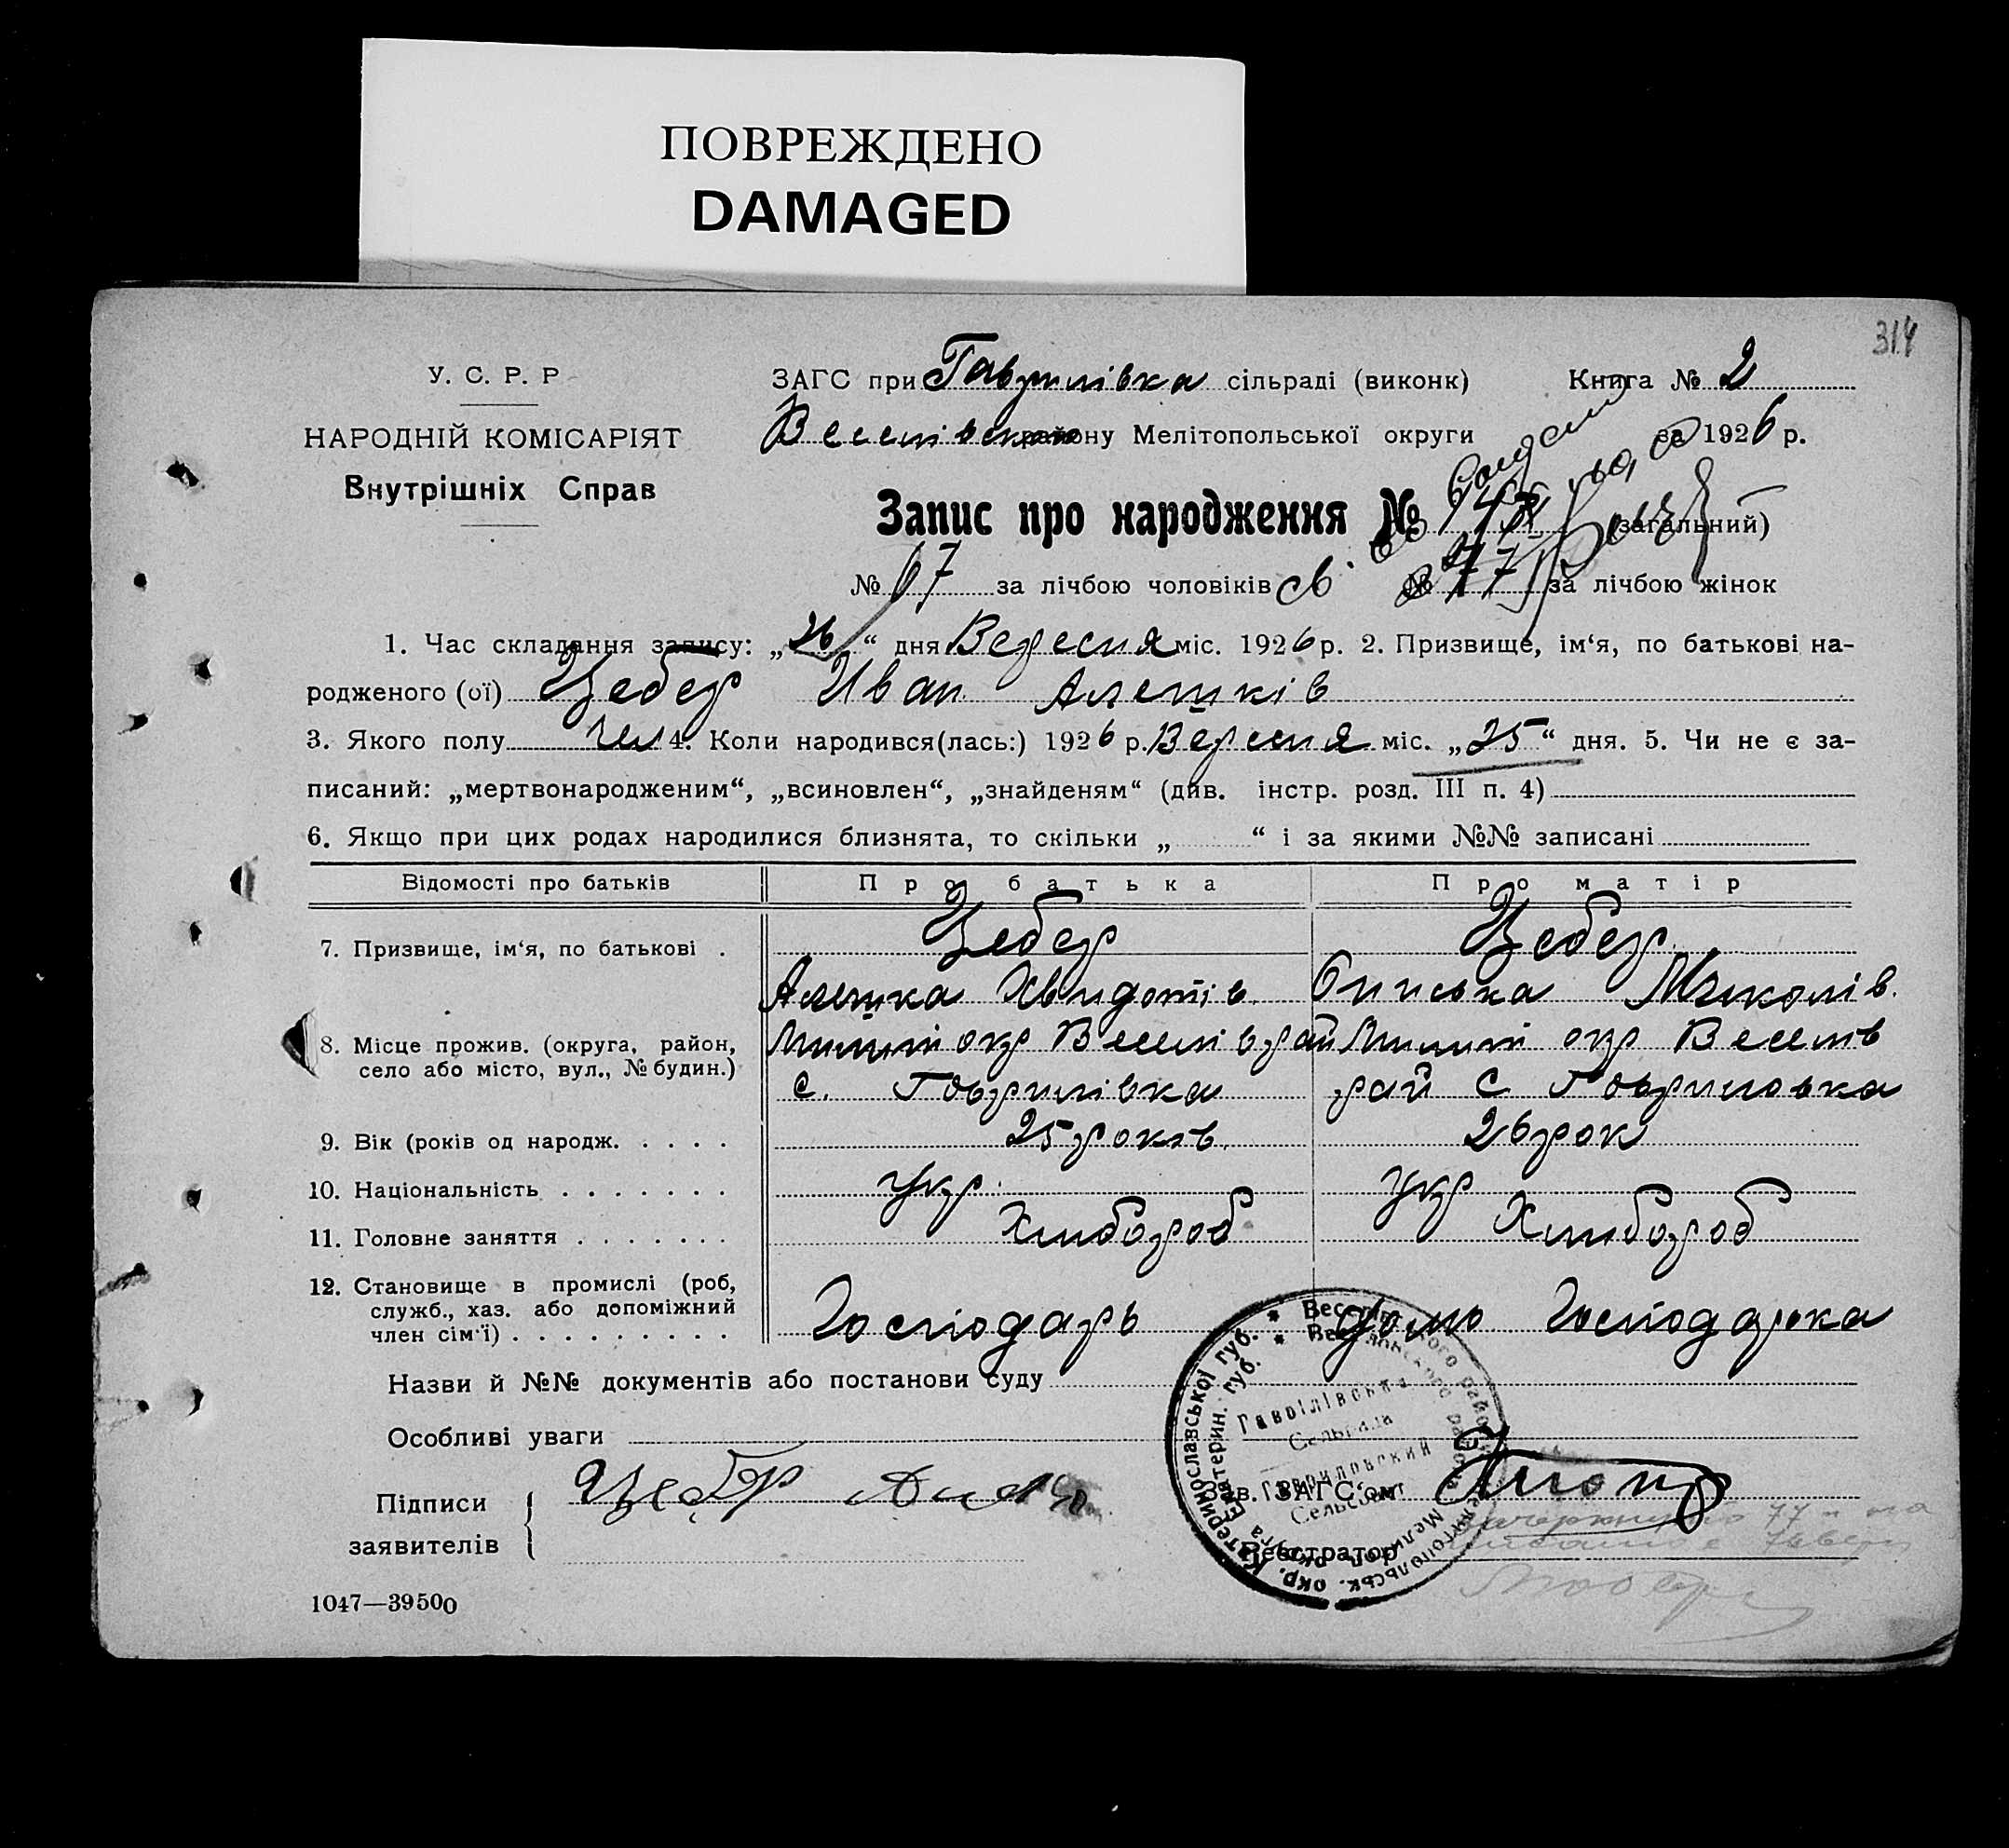 ПОВРЕЖДЕНО
DAMAGED
314
У. С. Р. Р
НАРОДНІЙ КОМІСАРІЯТ
Внутрішніх Справ
ЗАГС при Гаврилівка сільраді (виконк) Книга № 2
Веселівском району Мелітопольської округи за 1926 р.
Запис про народження № (загальний)
№ 67 за лічбою чоловіків № 77 за лічбою жінок
1. Час складання запису: „26“ дня Вересня міс. 1926 р. 2. Призвище, ім‘я, по батькові на-
родженого (ої) Цебер Иван Алешків
3. Якого полу чел 4. Коли народився(лась:) 1926 р. Вересня міс. „25“ дня. 5. Чи не є за-
писаний: „мертвонародженим“, „всиновлен“, „знайденям“ (див. інстр. розд. III п. 4)
6. Якщо при цих родах народилися близнята, то скільки „ “ і за якими №№ записані
Відомості про батьків Про батька Про матір
7. Призвище, ім‘я, по батькові . Цебер Цебер
Алешка Хвидотів. Ониська Миколів.
8. Місце прожив. (округа, район, Милит окр Веселів рай Милит окр Веселів
село або місто, вул., № будин.) с. Говрилівка рай с Говриловка
9. Вік (років од народж. . . . . 25 років. 26 рок
10. Національність . . . . . . . укр. укр
11. Головне заняття . . . . . . . Хлибороб Хлибороб
12. Становище в промислі (роб,
служб., хаз. або допоміжний
член сім‘ї) . . . . . . . . . Господарь домо Господарка
Назви й №№ документів або постанови суду
Особливі уваги
Підписи
заявителів
Цебер
Зав. ЗАГС‘ом
Реєстратор
Гаврілівська
Сельрада
Гавриловский
Сельсовет
1047—39500